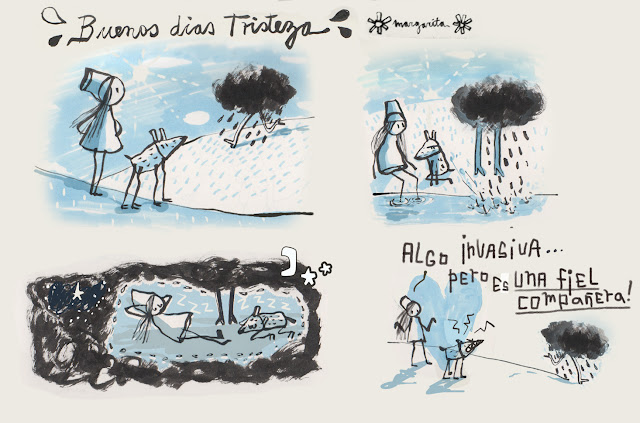 Buenos dias Tristeza
margarita
zzz zzzz
ALGO inVASiVA...
PERO ES UNA FiEL
COMPAÑERA!